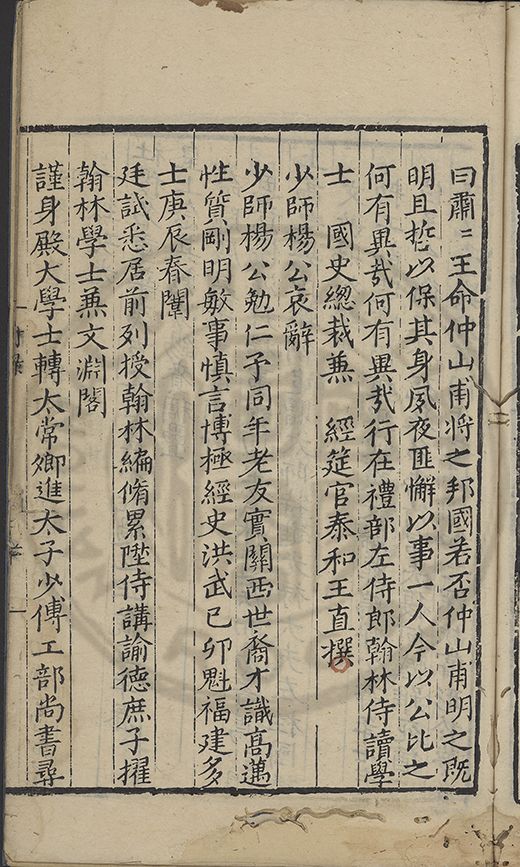 曰肅〻王命仲山甫將之邦國若否仲山甫明之既
明且哲以保其身夙夜匪懈以事一人今以公比之
何有異㢤何有異㢤行在禮部左侍郎翰林侍讀學
士 國史緫裁兼 經筵官泰和王直撰
少師楊公哀辭
少師楊公勉仁予同年老友實關西世裔才識高邁
性質剛明敏事慎言博極經史洪武己卯魁福建多
士庚辰春闈
廷試悉居前列授翰林編脩累陞侍講諭德庶子擢
翰林學士兼文淵閣
謹身殿大學士轉太常卿進太子少傅工部尚書尋